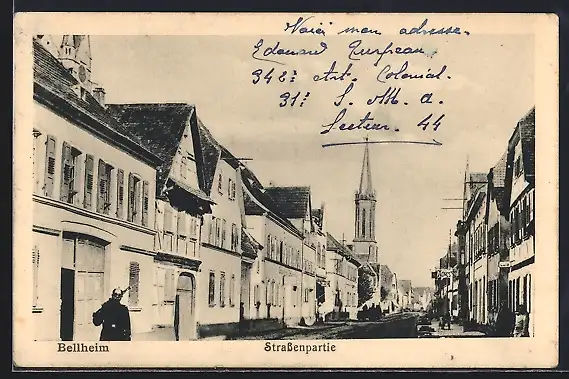 Voici mon adresse.
Edouard
342e Art. Colonial.
31e S. M. a.
Secteur. 44
Bellheim
Straßenpartie